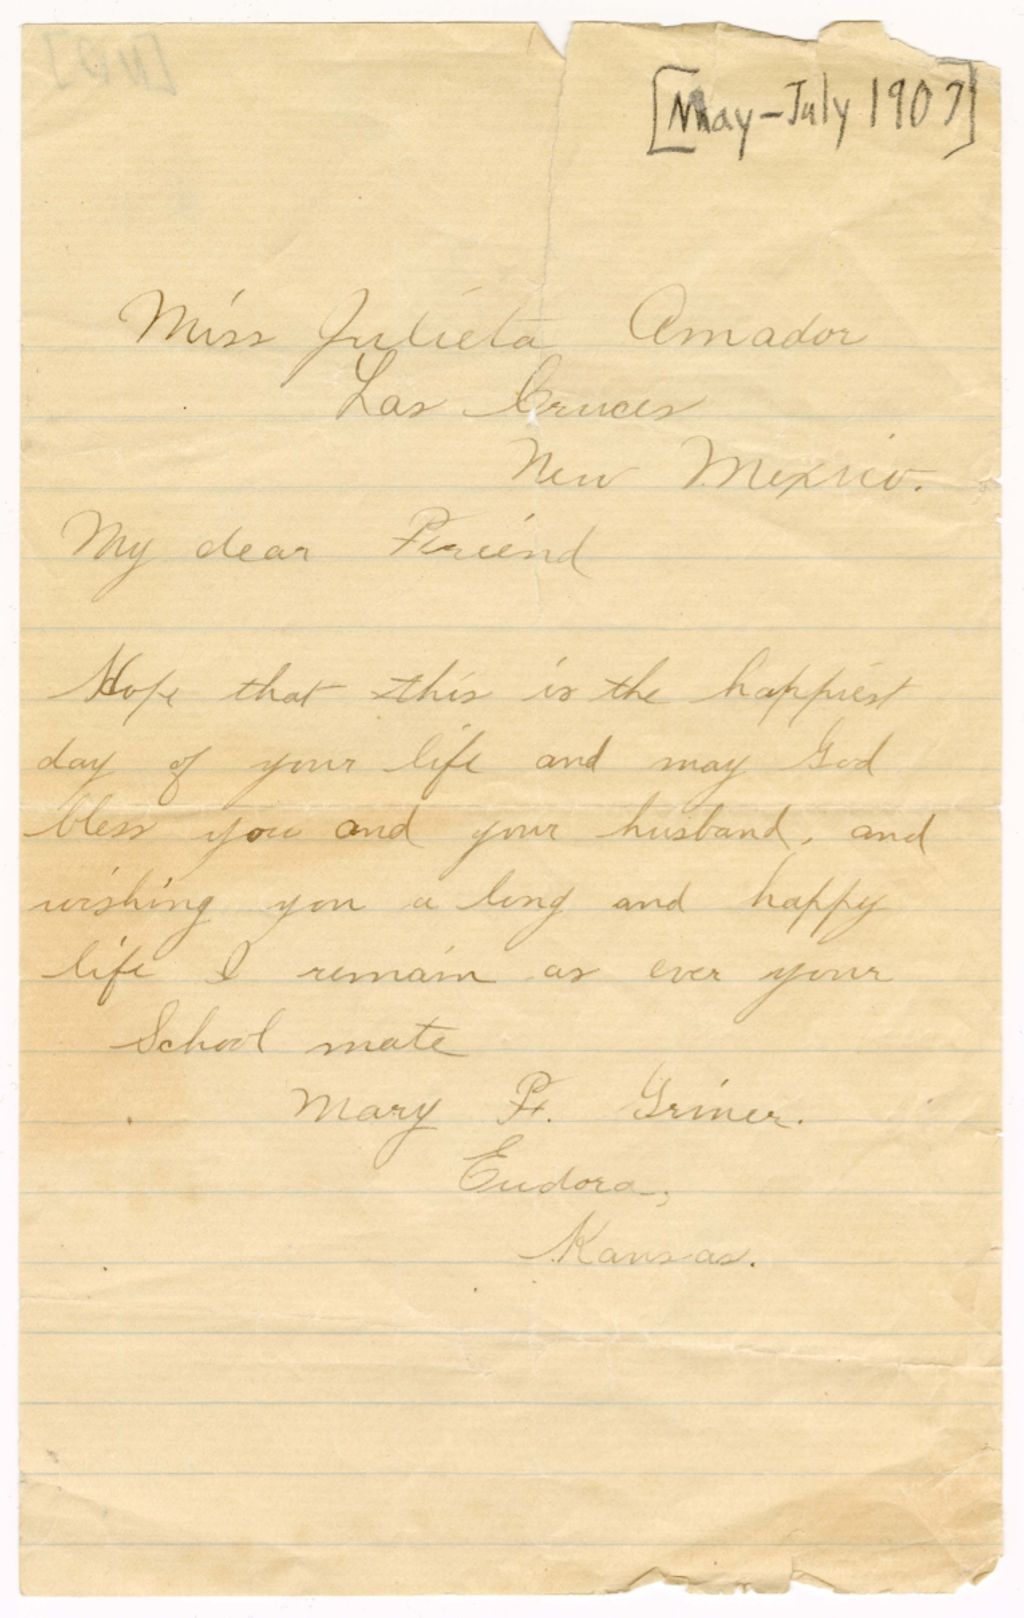 [May-July 1907]
Miss Julieta Amador
Las Cruces
New Mexico.
My dear Friend
Hope that this is the happiest
day of your life and may God
bless you and your husband, and
wishing you a long and happy
life I remain as ever your
School mate
Mary F. Griner.
Eudora,
Kansas.